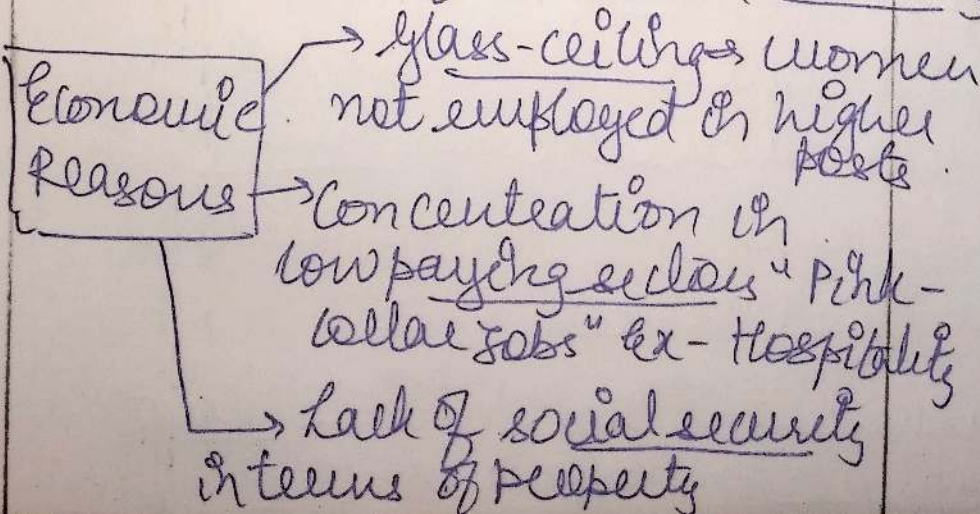 Economic
Reasons
→ Glass-ceiling → women
not employed in higher
posts.
→ Concentration in
low paying sectors "Pink-
collar jobs" Ex- Hospitality
→ Lack of social security
in terms of property